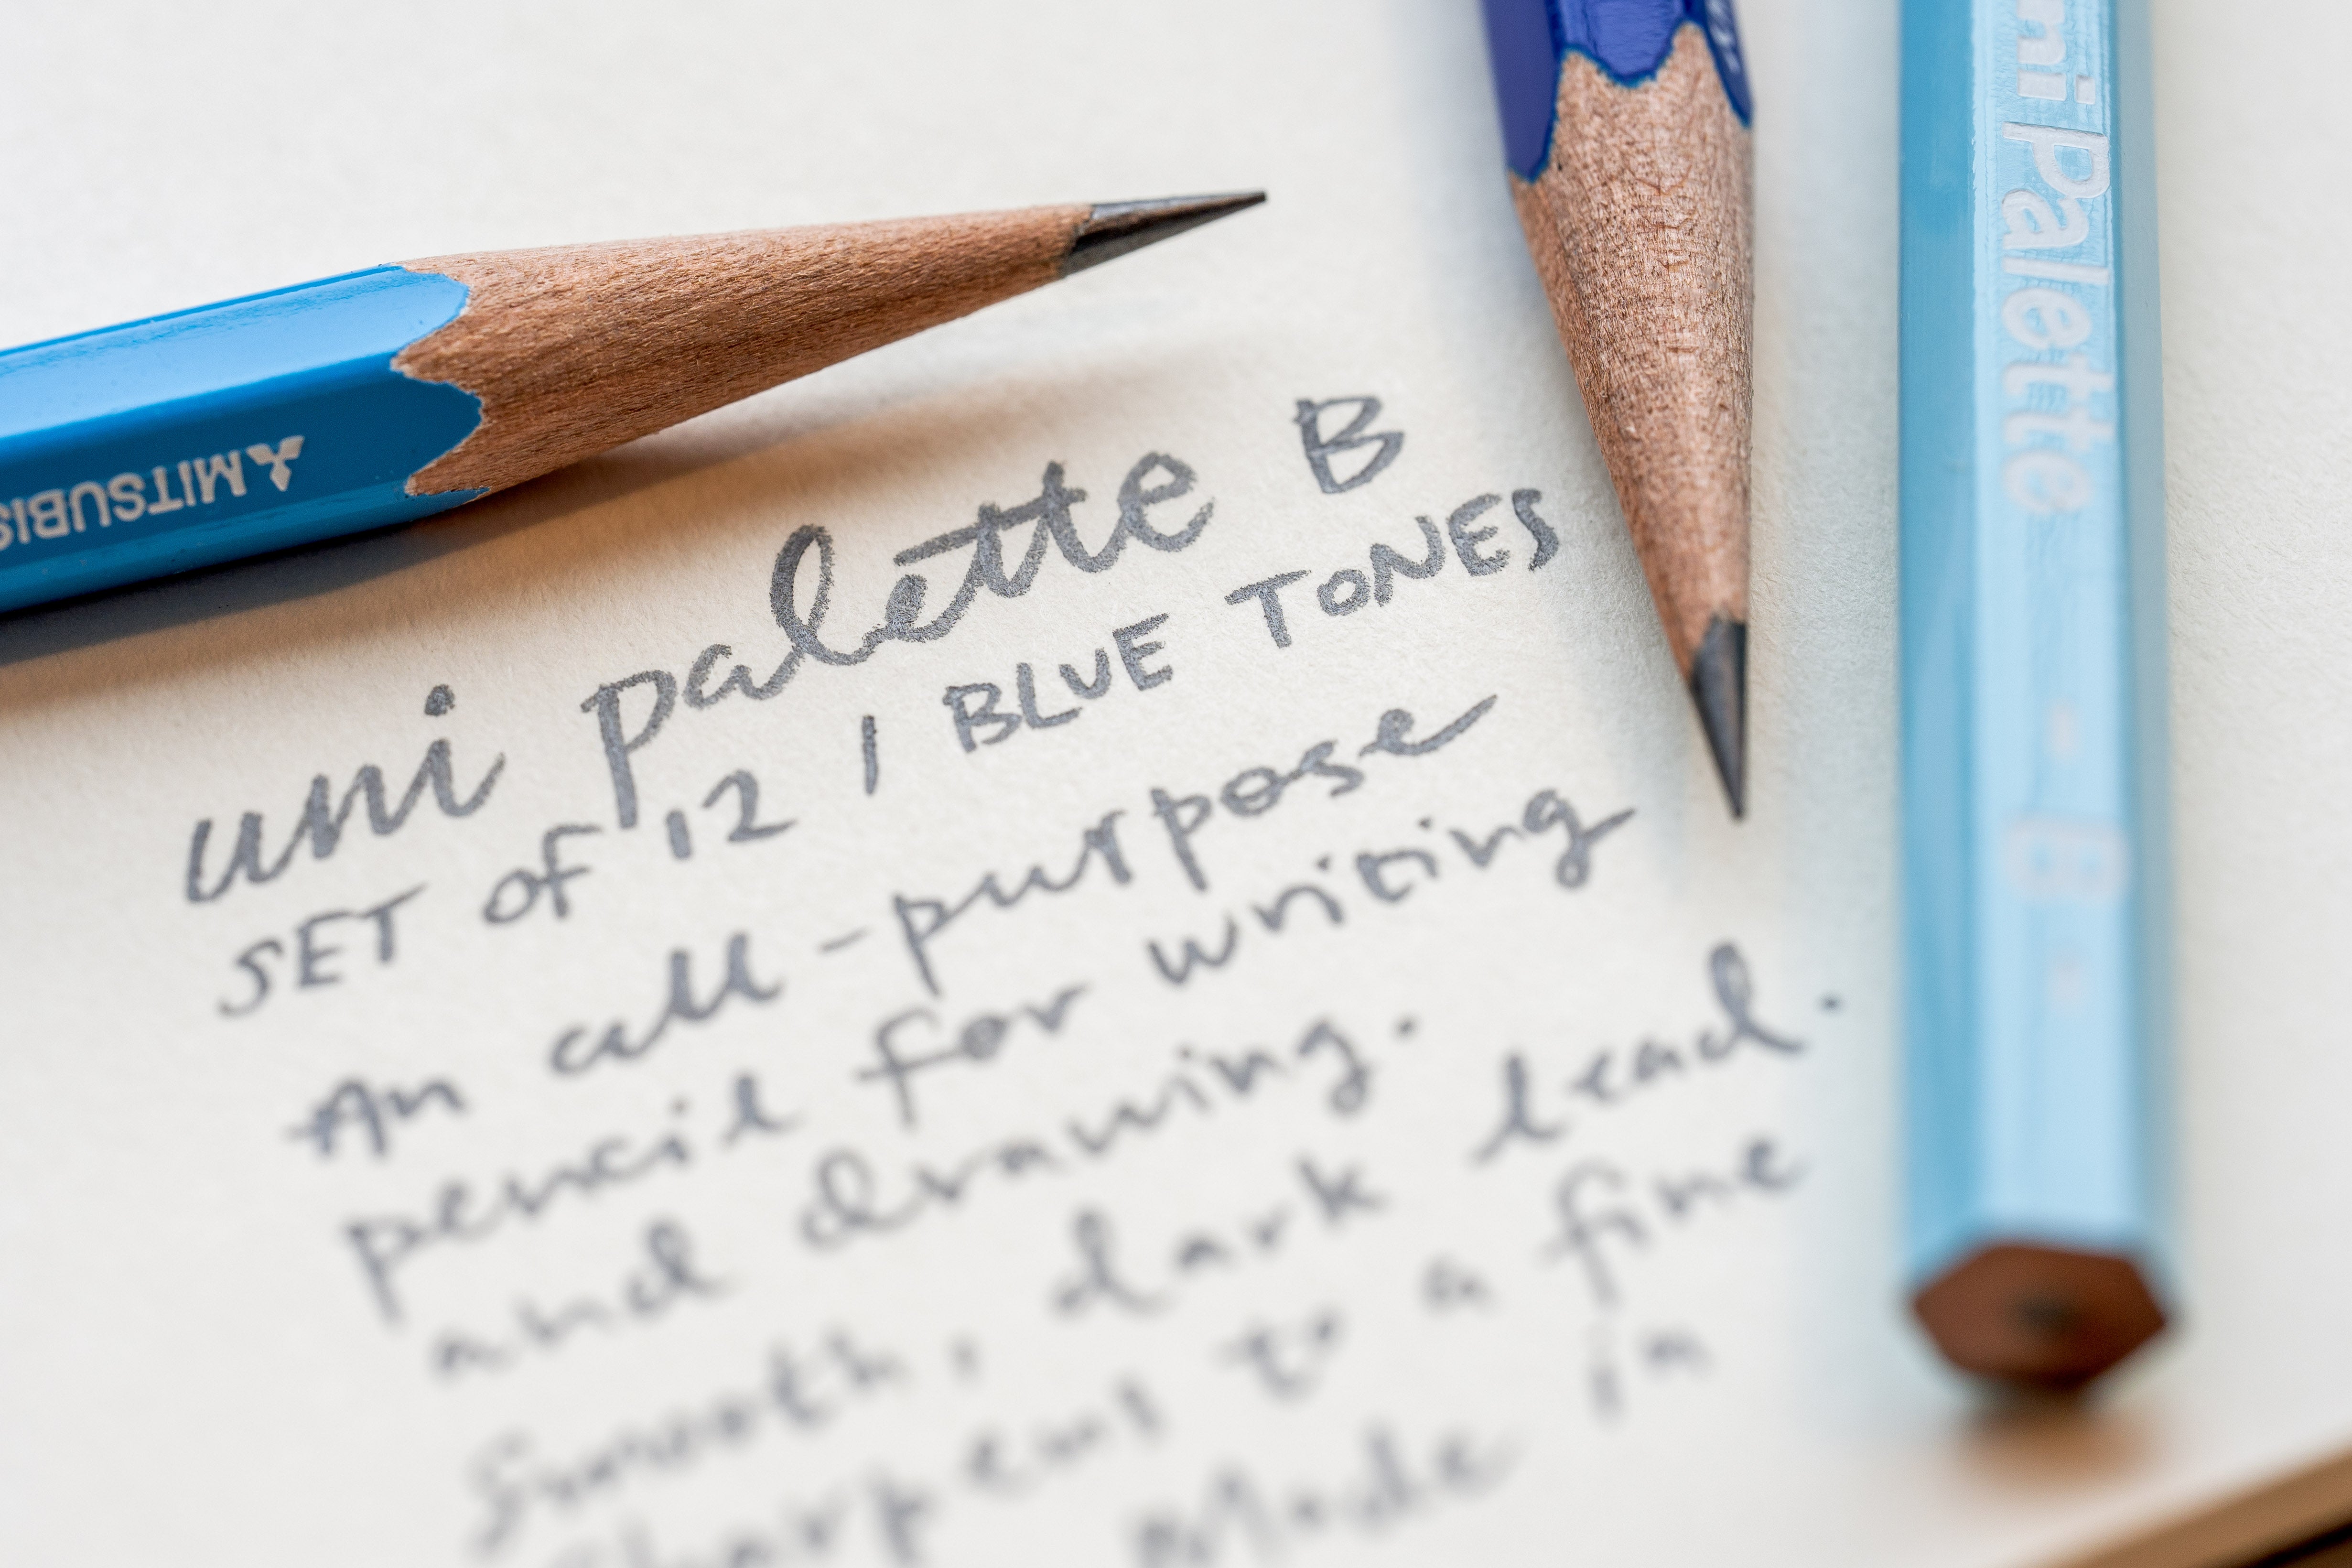 MITSUBIS
uni Palette
B
uni palette B
SET OF 12 | BLUE TONES
An all-purpose
pencil for writing
and drawing.
Smooth, dark lead.
Sharpens to a fine
Made in